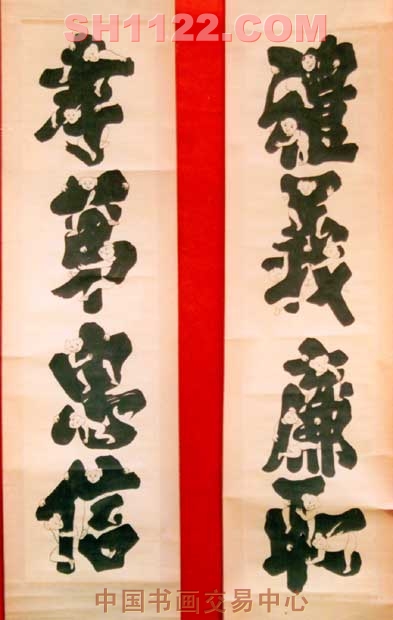 SH1122.COM
禮義廉恥
孝弟忠信
中国书画交易中心